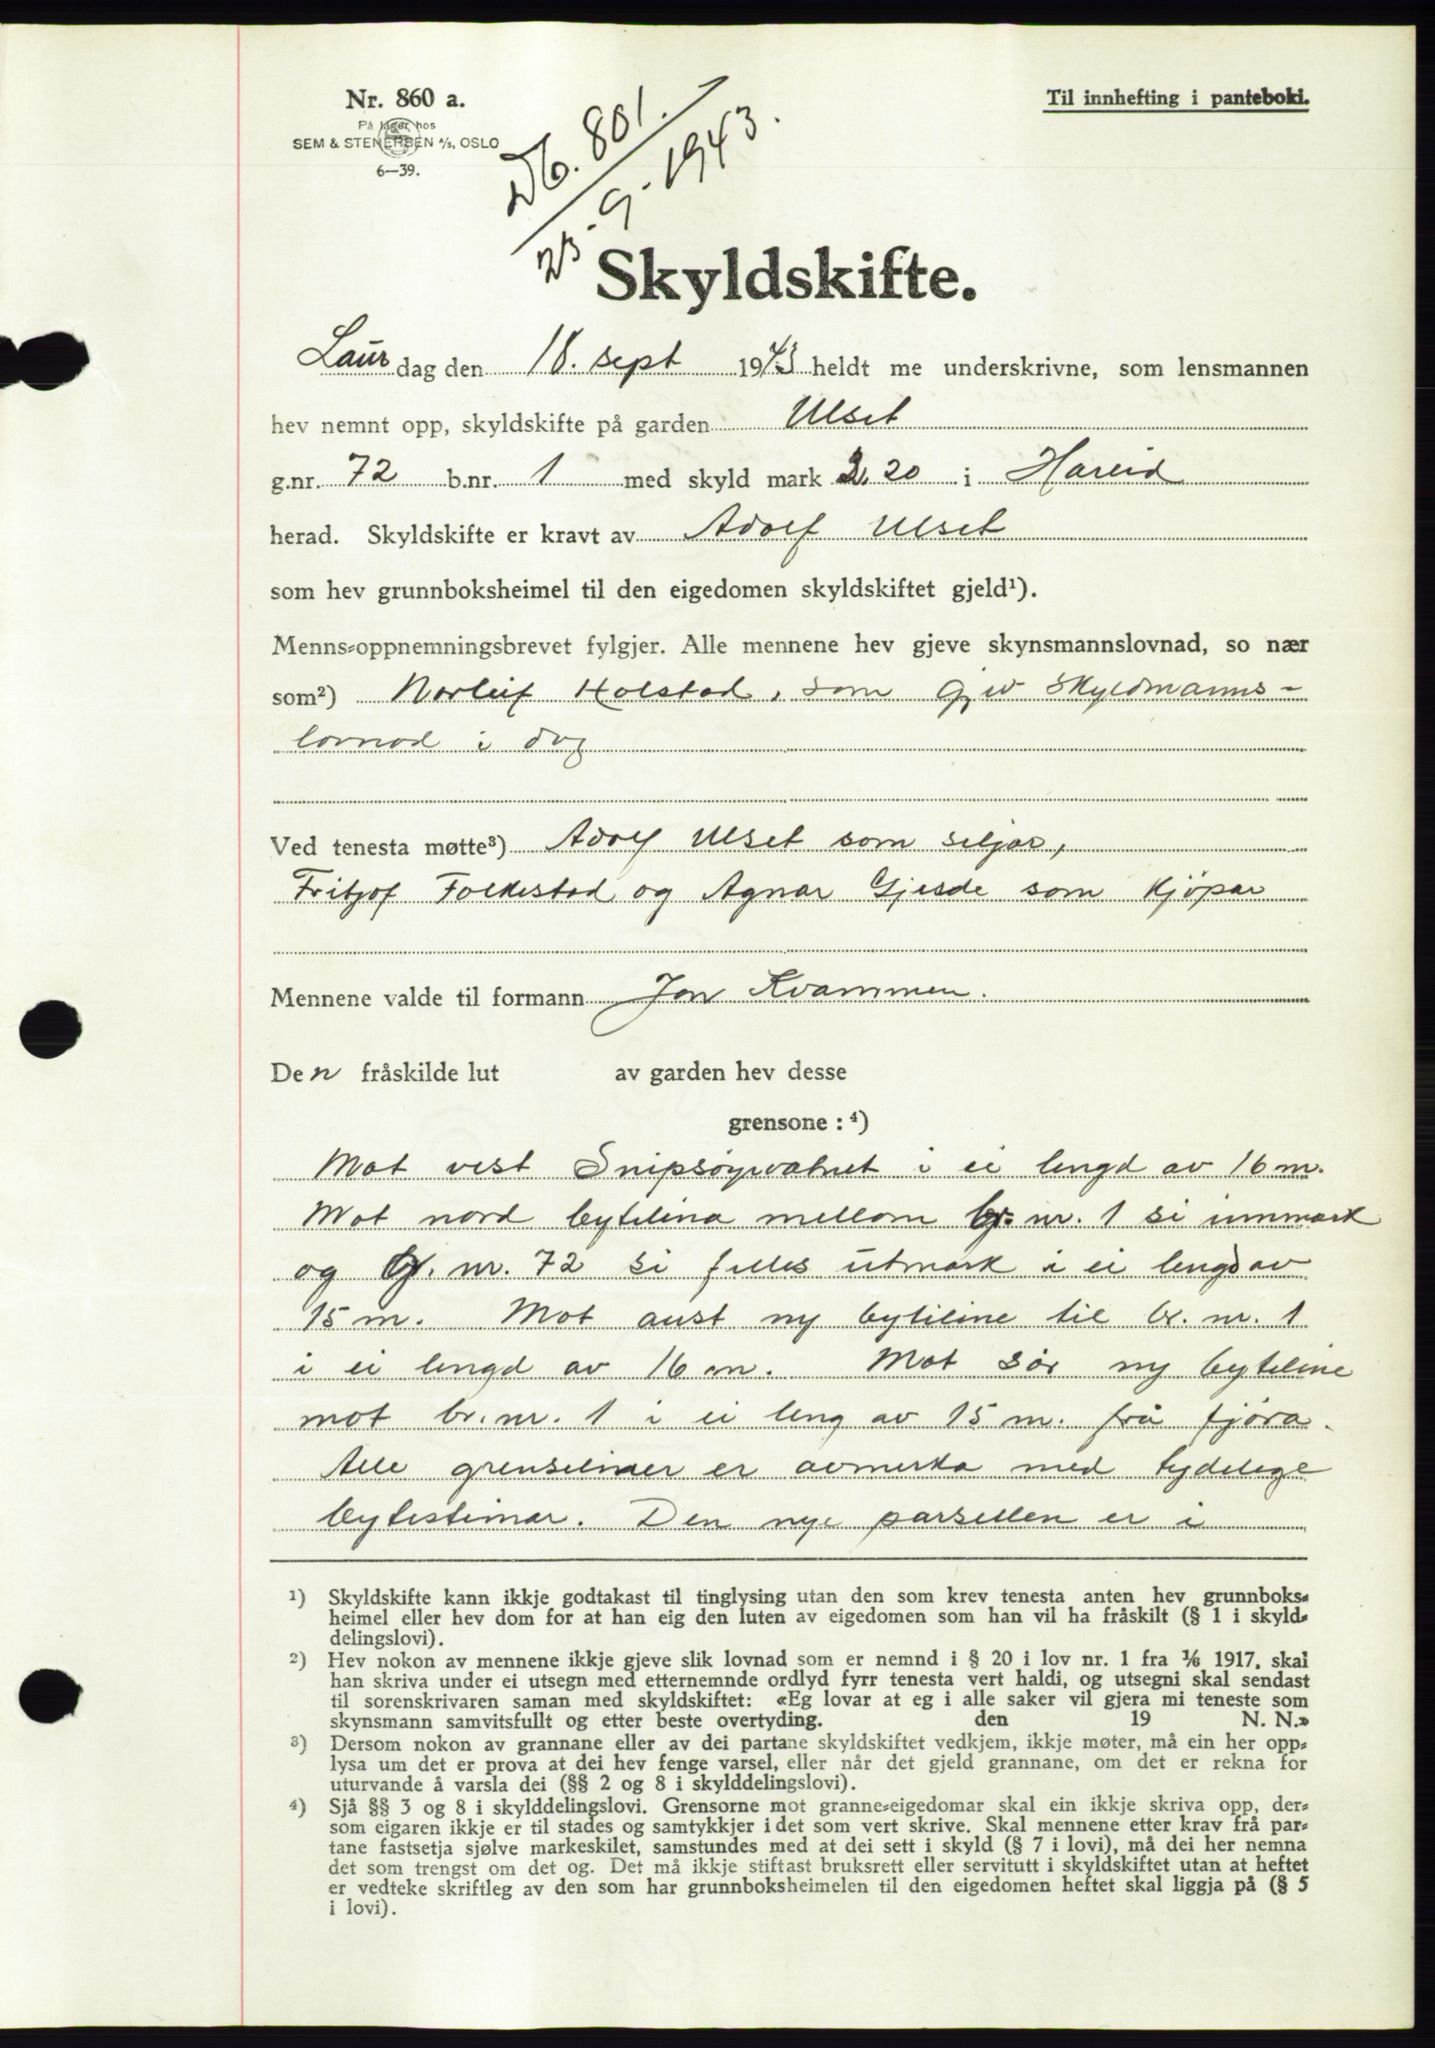 Nr. 860 a.
På lager hos
SEM & STENERSEN A/S, OSLO
6—39.
Til innhefting i panteboki.
Db. 801.
23-9-1943.
Skyldskifte.
Laurdag den 18. sept 1943 heldt me underskrivne, som lensmannen
hev nemnt opp, skyldskifte på garden Ulset
g.nr. 72 b.nr. 1 med skyld mark 2.20 i Hareid
herad. Skyldskifte er kravt av Adolf Ulset
som hev grunnboksheimel til den eigedomen skyldskiftet gjeld¹).
Menns-oppnemningsbrevet fylgjer. Alle mennene hev gjeve skynsmannslovnad, so nær
som²) Norleif Holstad, som gjev Skyldmanns-
lovnad i dag
Ved tenesta møtte³) Adolf Ulset som seljar,
Fritjof Folkestad og Agnar Gjesde som kjøpar
Mennene valde til formann Jon Kvammen.
Den fråskilde lut av garden hev desse
grensone: ⁴)
Mot vest Snipsøyrvatnet i ei lengd av 16 m.
Mot nord bytelina mellom br. nr. 1 si innmark
og Gr. nr. 72 si felles utmark i ei lengd av
15 m. Mot aust ny byteline til br. nr. 1
i ei lengd av 16 m. Mot sør ny byteline
mot br. nr. 1 i ei leng av 15 m. frå fjøra.
Alle grenseliner er avmerka med tydelege
bytesteinar. Den nye parsellen er i
¹) Skyldskifte kann ikkje godtakast til tinglysing utan den som krev tenesta anten hev grunnboks-
heimel eller hev dom for at han eig den luten av eigedomen som han vil ha fråskilt (§ 1 i skyld-
delingslovi).
²) Hev nokon av mennene ikkje gjeve slik lovnad som er nemnd i § 20 i lov nr. 1 fra 1/6 1917, skal
han skriva under ei utsegn med etternemnde ordlyd fyrr tenesta vert haldi, og utsegni skal sendast
til sorenskrivaren saman med skyldskiftet: «Eg lovar at eg i alle saker vil gjera mi teneste som
skynsmann samvitsfullt og etter beste overtyding. den 19 N. N.»
³) Dersom nokon av grannane eller av dei partane skyldskiftet vedkjem, ikkje møter, må ein her opp-
lysa um det er prova at dei hev fenge varsel, eller når det gjeld grannane, om det er rekna for
uturvande å varsla dei (§§ 2 og 8 i skylddelingslovi).
⁴) Sjå §§ 3 og 8 i skylddelingslovi. Grensorne mot granne-eigedomar skal ein ikkje skriva opp, der-
som eigaren ikkje er til stades og samtykkjer i det som vert skrive. Skal mennene etter krav frå par-
tane fastsetja sjølve markeskilet, samstundes med at dei sett i skyld (§ 7 i lovi), må dei her nemna
det som trengst om det og. Det må ikkje stiftast bruksrett eller servitutt i skyldskiftet utan at heftet
er vedteke skriftleg av den som har grunnboksheimelen til den eigedomen heftet skal liggja på (§ 5
i lovi).